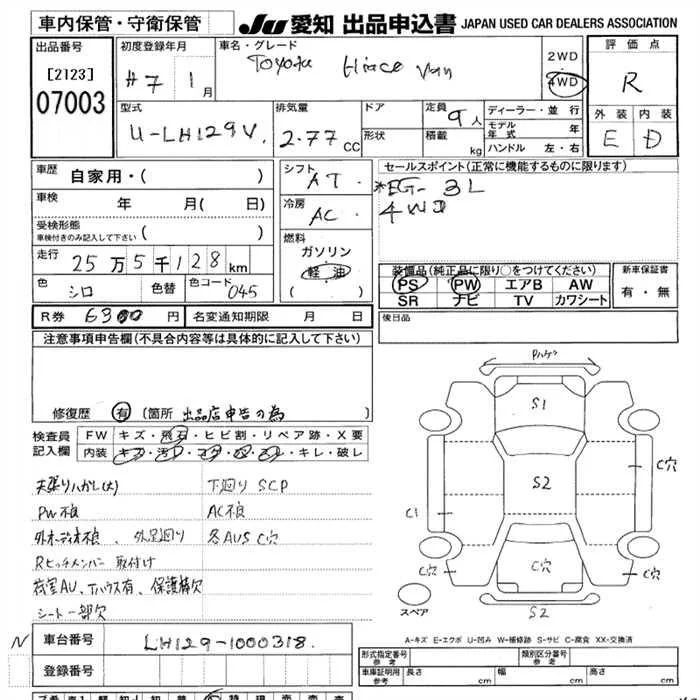 車内保管・守衛保管
JU 愛知 出品申込書 JAPAN USED CAR DEALERS ASSOCIATION
出品番号
[2123]
07003
初度登録年月
H7 1月
車名・グレード
Toyota Hiace Van
2WD
4WD
評価点
R
外装 内装
E D
型式
U-LH129V.
排気量
2.77 CC
ドア
形状
定員 9人
積載 kg
ディーラー・並行
モデル年式 年
ハンドル 左・右
車歴 自家用・( )
車検 年 月( 日)
受検形態
車検付きのみ記入して下さい ( )
走行
25万5千128km
色 シロ 色替 色コード 045
シフト AT.
冷房 AC.
燃料
ガソリン
軽油
( )
セールスポイント(正常に機能するものに限ります)
*EG-3L
4WD
装備品(純正品に限り○をつけてください)
PS PW エアB AW
SR ナビ TV カワシート
新車保証書
有・無
R券 6300円 名変通知期限 月 日
後日品
注意事項申告欄(不具合内容等は具体的に記入して下さい)
修復歴 有 (箇所 出品店申告の為 )
検査員記入欄
FW キズ・飛石・ヒビ割・リペア跡・X要
内装 キズ・汚レ・コゲ・穴・スレ・キレ・破レ
下廻り SCP
PW不良
AC不良
各AUS C穴
Rヒッチメンバー 取付け
シート一部欠
S1
S2
C1
C穴
C穴
C穴
C穴
S2
スペア
A-キズ E-エクボ U-凹み W-補修跡 S-サビ C-腐食 XX-交換済
N
車台番号 LH129-1000318.
登録番号
形式指定番号 参考
類別区分番号 参考
車庫証明用 参考 長さ cm 幅 cm 高さ cm